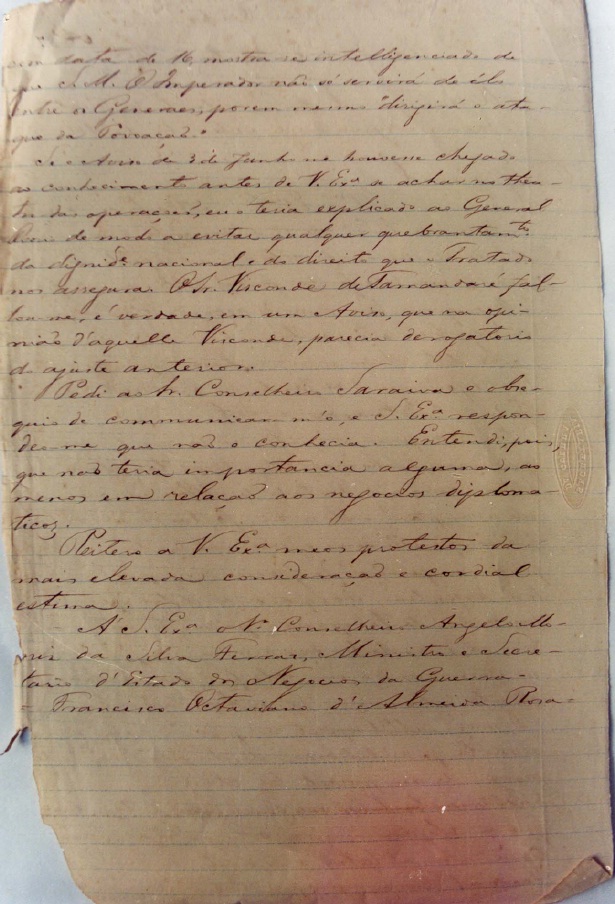 com data de 16, mostra se intelligenciado de
que S. M. O Imperador não só servirá de élo
entre os Generaes, porem mesmo "dirigirá o ata-
que da Povoação."
Se o Aviso de 3 de Junho me houvesse chegado
ao conhecimento antes de V. Exª se achar no thea-
tro das operações, eu o teria explicado ao General
de modo a evitar qualquer quebrantamto
da dignide nacional e do direito que o Tratado
nos assegura. O Sr. Visconde de Tamandaré fal-
lou-me, é verdade, em um Aviso, que na opi-
nião d'aquelle Visconde, parecia derogatorio
do ajuste anterior.
Pedi ao Sr. Conselheiro Saraiva o obse-
quio de communicar-m'o, e S. Exª respon-
deo-me que não o conhecia. Entendi, pois,
que não teria importancia alguma, ao
menos em relação aos negocios diploma-
ticos.
Reitero a V. Exª meos protestos da
mais elevada consideração e cordial
estima.
A S. Exª o Conselheiro Angelo Mo-
niz da Silva Ferraz, Ministro e Secre-
tario d'Estado dos Negocios da Guerra -
Francisco Octaviano d'Almeida Rosa -